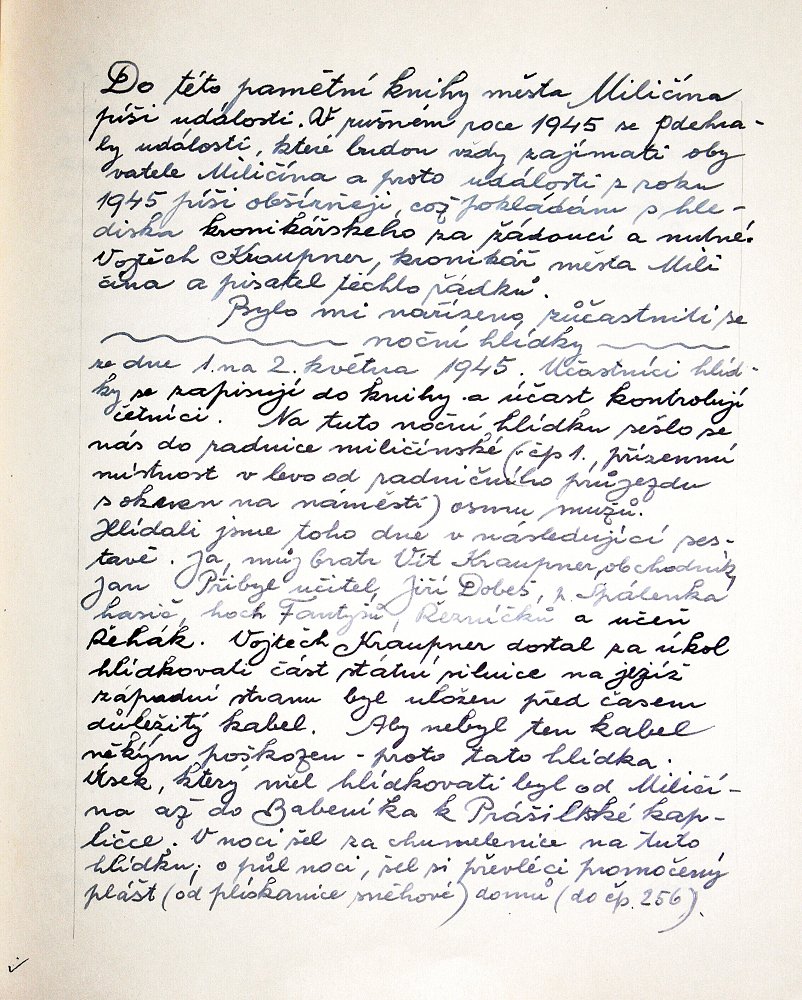 Do této pamětní knihy města Miličína
píši události. V rušném roce 1945 se odehrá-
ly události, které budou vždy zajímati oby
vatele Miličína a proto události z roku
1945 píši obšírněji, což pokládám s hle-
diska kronikářského za žádoucí a nutné.
Vojtěch Kraupner, kronikář města Mili
čína a pisatel těchto řádků.
Bylo mi nařízeno, zúčastniti se
noční hlídky
ze dne 1. na 2. května 1945. Účastníci hlíd-
ky se zapisují do knihy a účast kontrolují
četníci. Na tuto noční hlídku sešlo se
nás do radnice miličínské (čp 1., přízemní
místnost v levo od radničního průjezdu
s oknem na náměstí) osmu mužů.
Hlídali jsme toho dne v následující ses-
tavě. Já, můj bratr Vít Kraupner, obchodník,
Jan Přibyl učitel, Jiří Dobeš, p. Spálenka
hasič, hoch Fantyšů, Řezníčků a učeň
Řehák. Vojtěch Kraupner dostal za úkol
hlídkovati část státní silnice na jejíž
západní stranu byl uložen před časem
důležitý kabel. Aby nebyl ten kabel
někým poškozen - proto tato hlídka.
Úsek, který měl hlídkovati byl od Miličí-
na až do Babeníka k Prášilské kap-
ličce. V noci šel za chumelenice na tuto
hlídku; o půl noci, šel si převléci promočený
plášť (od plískanice sněhové) domů (do čp. 256).